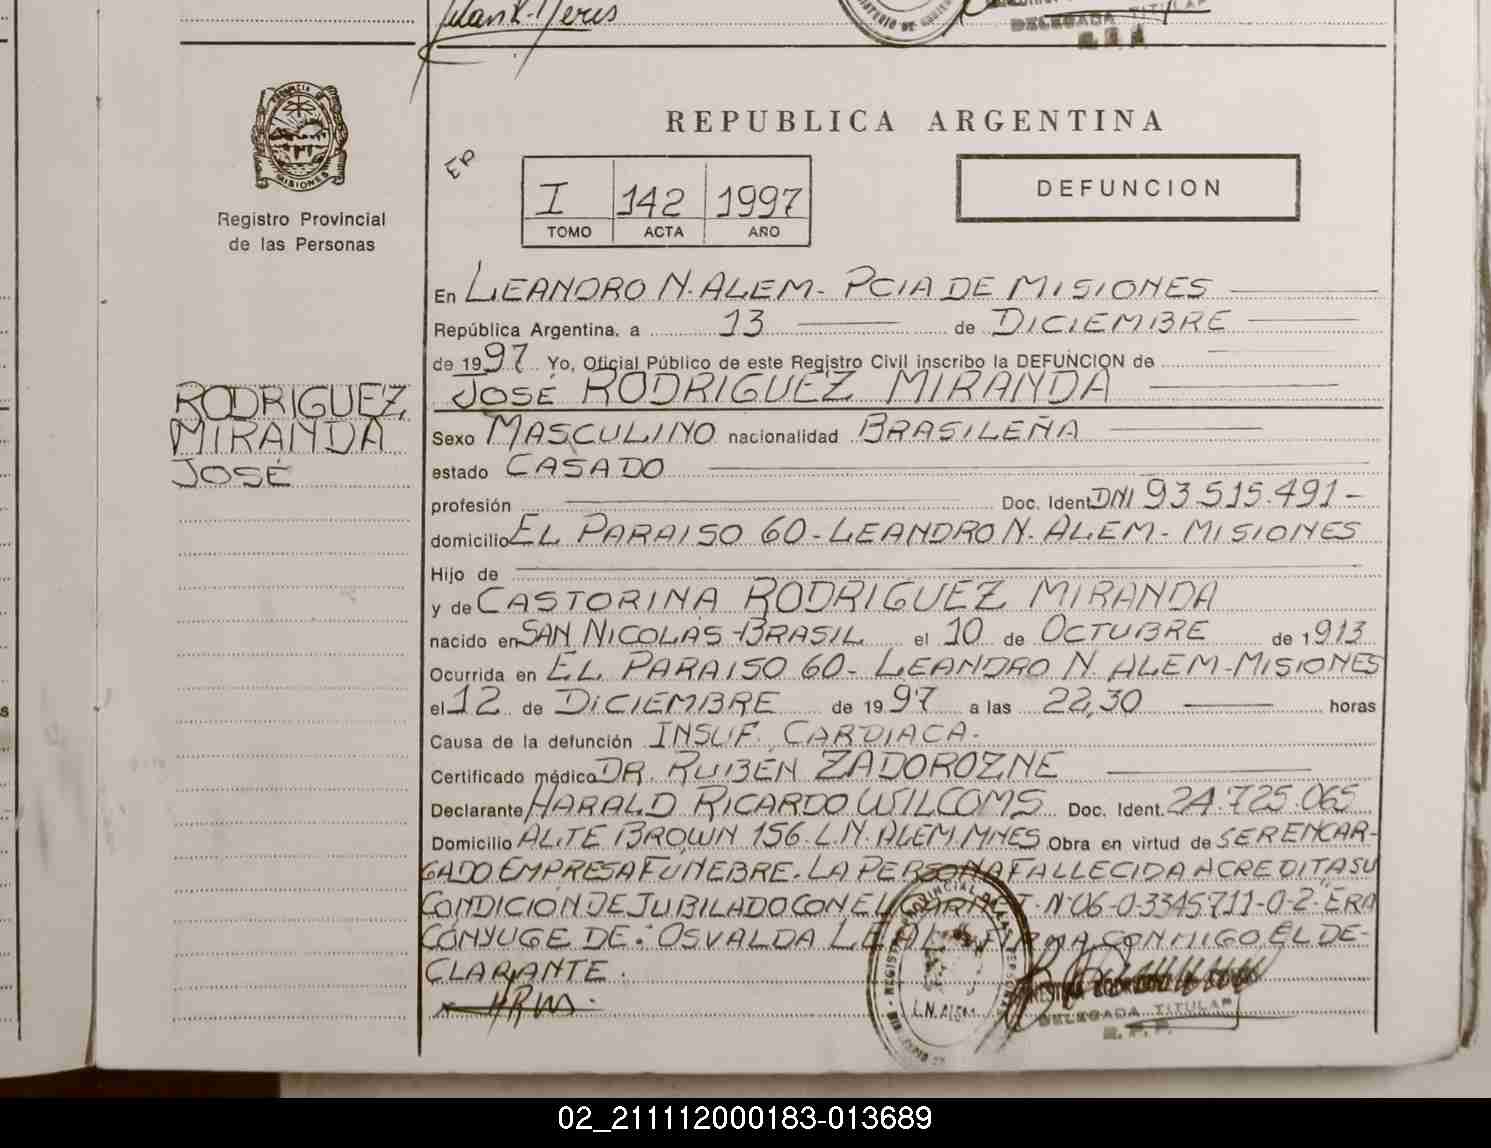 DELEGADA TITULAR
PROVINCIA DE
MISIONES
Registro Provincial
de las Personas
REPUBLICA ARGENTINA
EP
I 142 1997
TOMO ACTA AÑO
DEFUNCION
En LEANDRO N. ALEM - PCIA DE MISIONES
República Argentina, a 13 de DICIEMBRE
de 1997 Yo, Oficial Público de este Registro Civil inscribo la DEFUNCION de
JOSÉ RODRIGUEZ MIRANDA
RODRIGUEZ
MIRANDA
JOSÉ
Sexo MASCULINO nacionalidad BRASILEÑA
estado CASADO
profesión Doc. Ident. DNI 93.515.491-
domicilio EL PARAISO 60 - LEANDRO N. ALEM - MISIONES
Hijo de
y de CASTORINA RODRIGUEZ MIRANDA
nacido en SAN NICOLÁS - BRASIL el 10 de OCTUBRE de 1913
Ocurrida en EL PARAISO 60 - LEANDRO N. ALEM - MISIONES
el 12 de DICIEMBRE de 1997 a las 22,30 horas
Causa de la defunción INSUF. CARDIACA.
Certificado médico DR. RUBÉN ZADOROZNE
Declarante HARALD RICARDO WILCOMS Doc. Ident. 24.725.065
Domicilio ALTE BROWN 156. L.N. ALEM. MNES Obra en virtud de SER ENCAR-
GADO EMPRESA FÚNEBRE. LA PERSONA FALLECIDA ACREDITA SU
CONDICIÓN DE JUBILADO CON EL CARNET Nº 06-0-3345711-0-2 "ERA
CÓNYUGE DE: OSVALDA LEAL FIRMA CONMIGO EL DE-
CLARANTE.
HRW
L.N. ALEM
DELEGADA TITULAR
R. P. P.
02_211112000183-013689